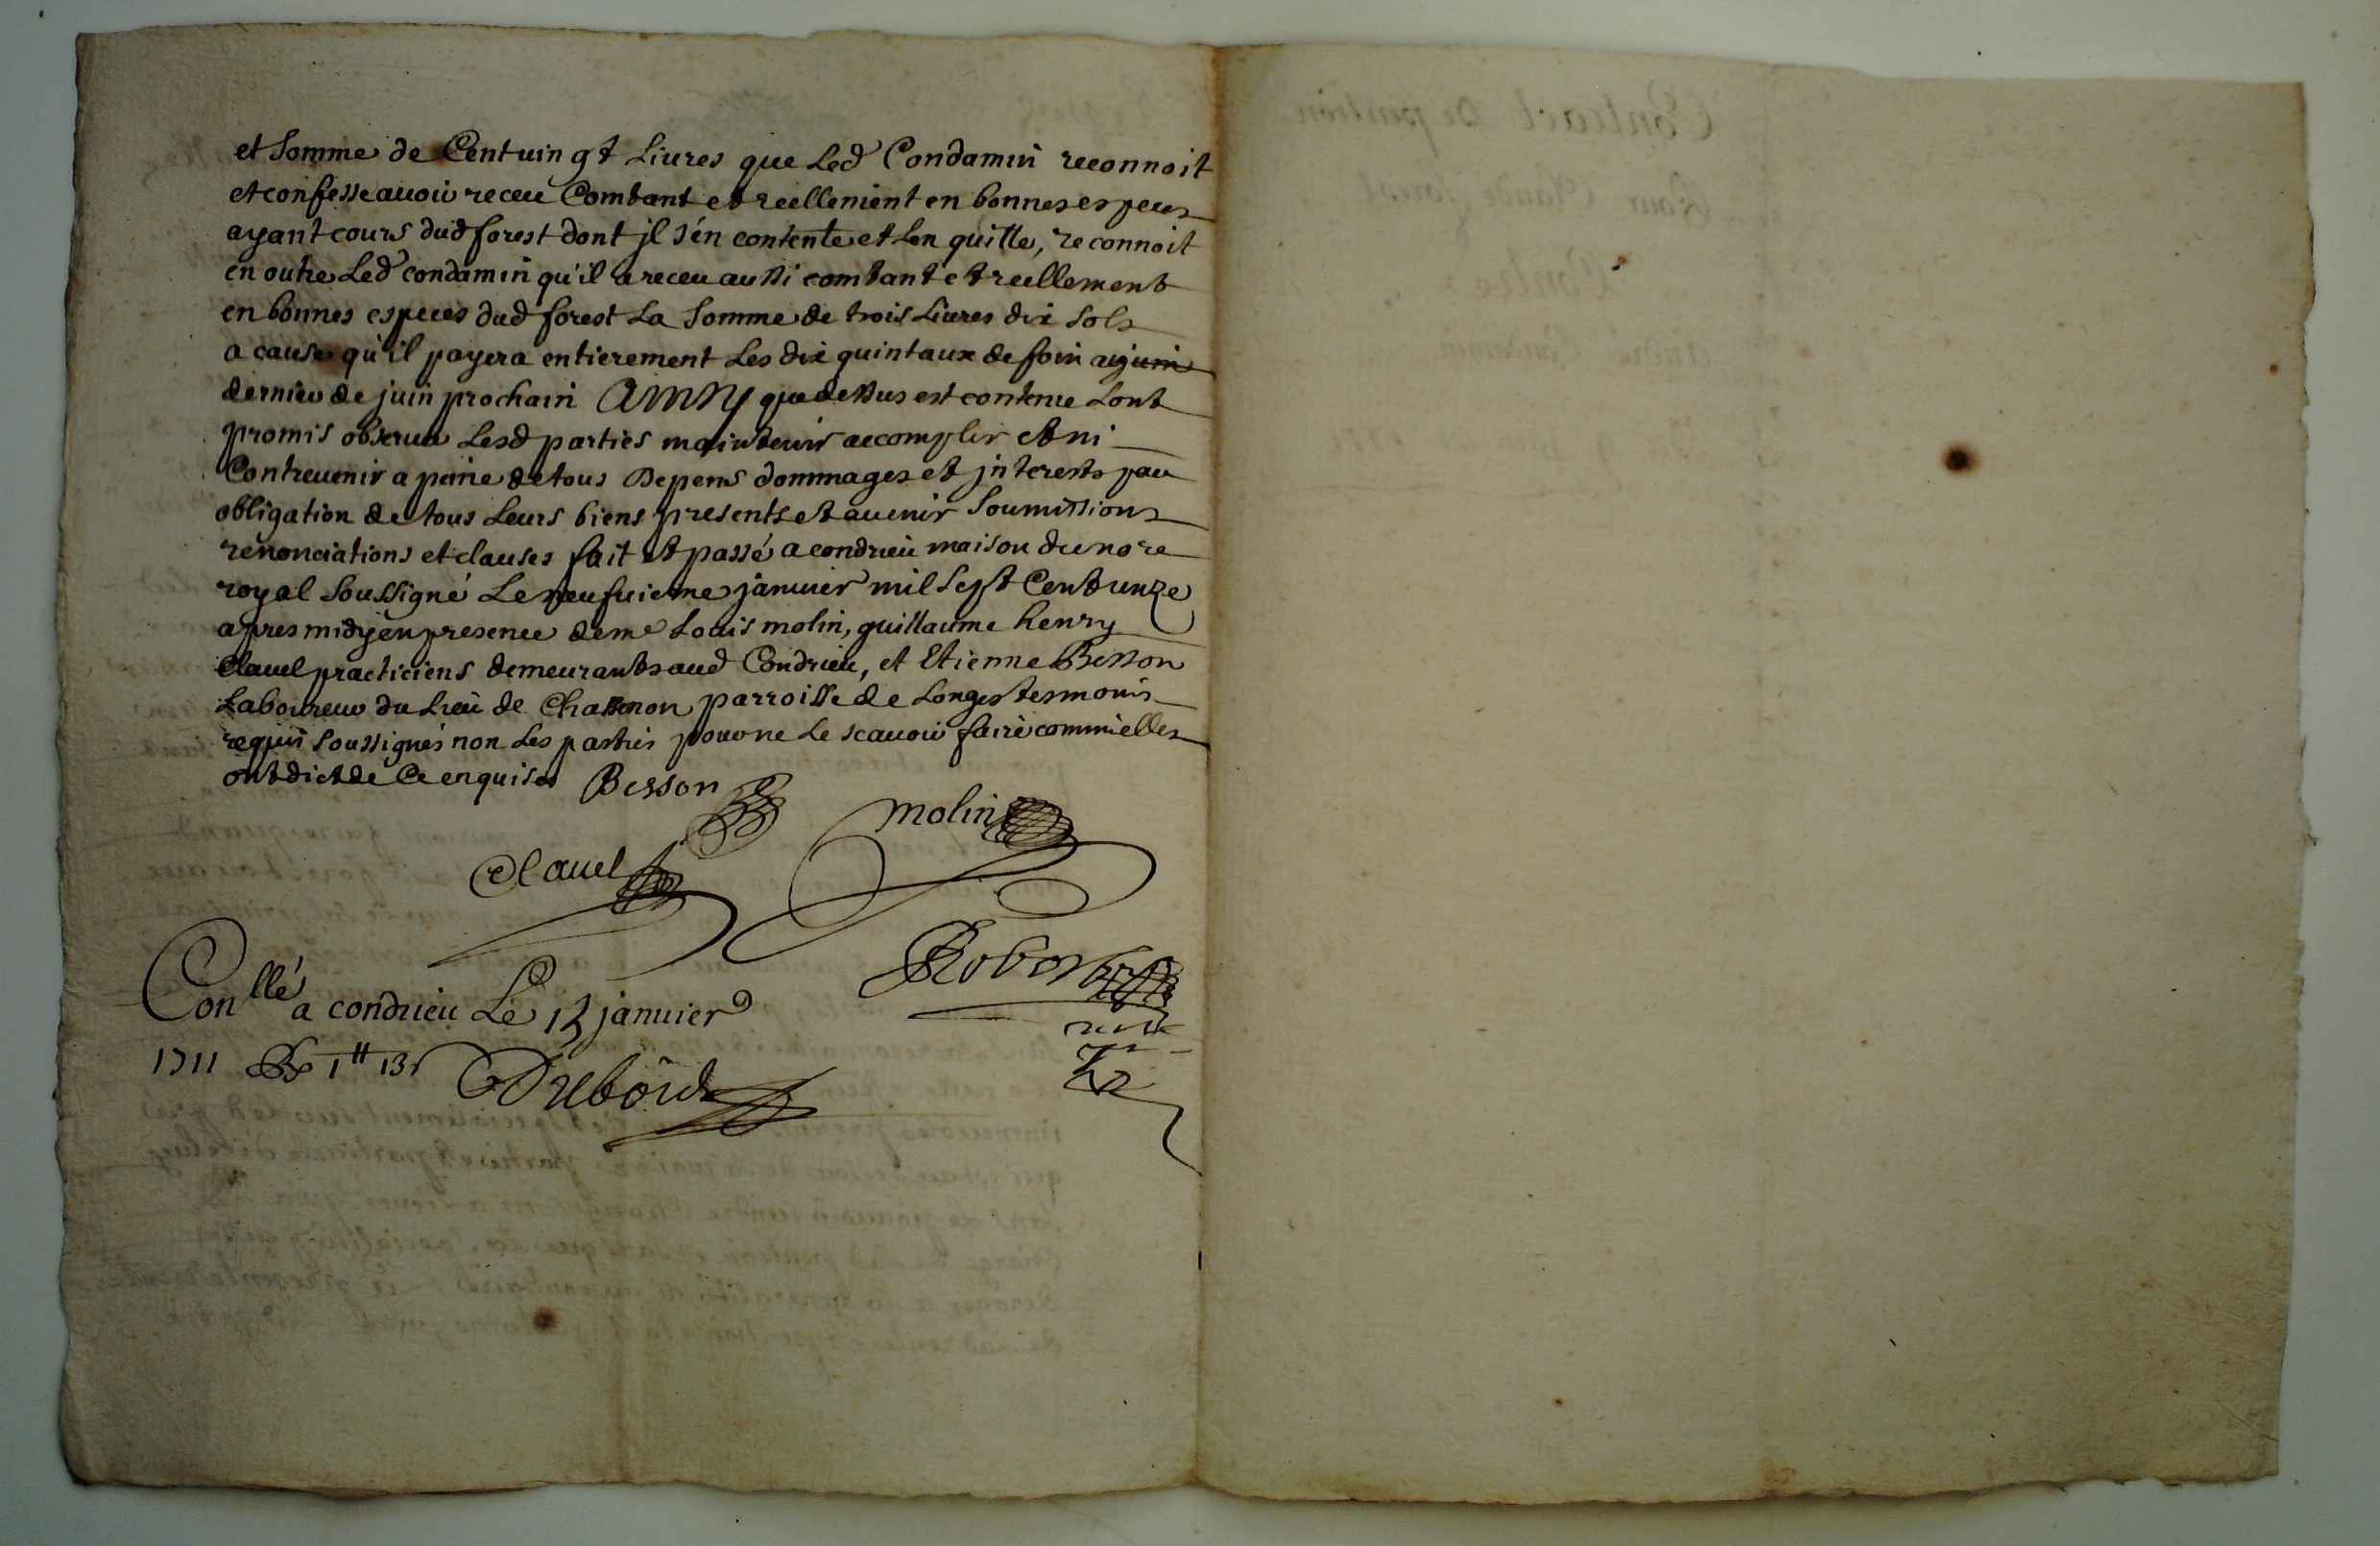 et Somme de Cent uingt Liures que Led Condamin reconnoit
et confesse auoir receu Comtant et reellement en bonnes especes
ayant cours dud forest dont jl s'en contente et Len quitte, reconnoit
en outre Led condamin qu'il a receu aussi comtant et reellement
en bonnes especes dud forest La Somme de trois Liures dix Sols
a cause qu'il payera entierement Les dix quintaux de foin
dernier de juin prochain Ainsy que dessus est contenu Lont
promis obseruer Lesd parties maintenir accomplir et ni
Contreuenir a peine de tous Depens dommages et jnterests par
obligation de tous Leurs biens presents et auenir Soumissions
renonciations et clauses fait et passé a condrieu maison du nore
royal Soussigné Le neufuieme januier mil Sept Cent unze
apres midy en presence de me Louis molin, guillaume henry
Clauel practiciens demeurants aud Condrieu, et Etienne Besson
Laboureur du Lieu de Chassenon parroisse de Longes tesmoins
requis Soussignés non Les parties pour ne Le scauoir faire comme elles
ont dict de Ce enquises Besson
molin
Clauel
Robert
Conllé a condrieu Le 13 januier
1711 1tt 13s
Contract de pention
Pour Claude
Contre